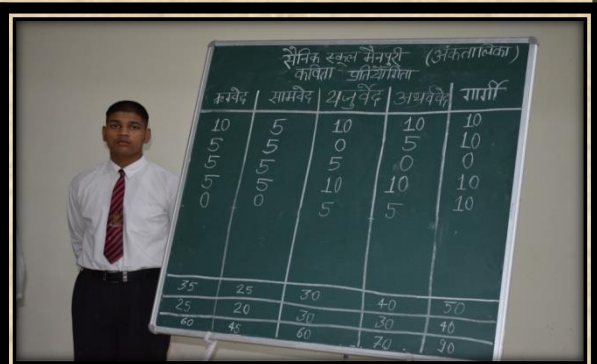 सैनिक स्कूल मैनपुरी (अंकतालिका)
कविता प्रतियोगिता
ऋग्वेद सामवेद यजुर्वेद अथर्ववेद गार्गी
10 5 10 10 10
5 5 0 5 10
5 5 5 0 0
5 5 10 10 10
0 0 5 5 10
35 25 30 40 50
25 20 30 30 40
60 45 60 70 90